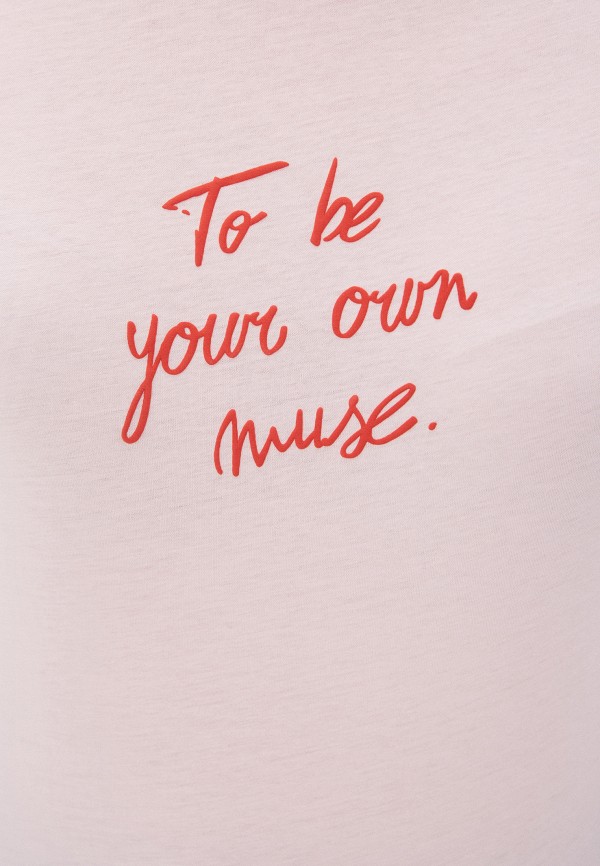 To be
your own
muse.